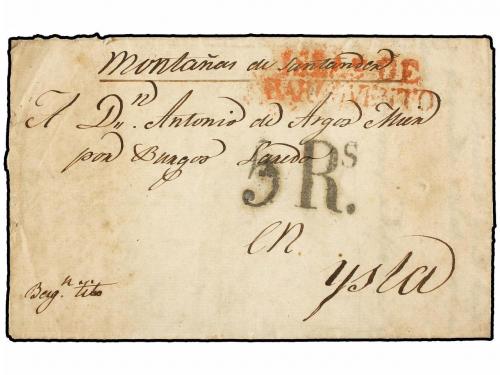 Montañas de Santander
A Dn. Antonio de Argos Muer
por Burgos Laredo
5 Rs.
en
ysla
Berg.n tito